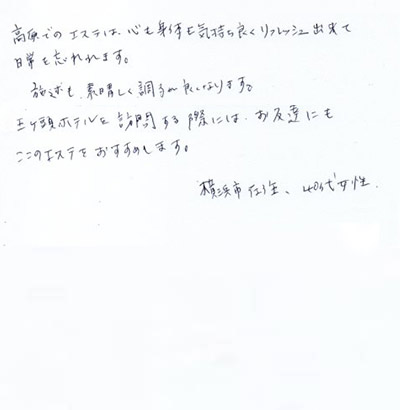 高原でのエステは、心も身体も気持ち良くリフレッシュ出来て
日常を忘れれます。
施述も、素晴しく調子が良くなります。
王ヶ頭ホテルを訪問する際には、お友達にも
ここのエステをおすすめします。
横浜市在住、40代女性.